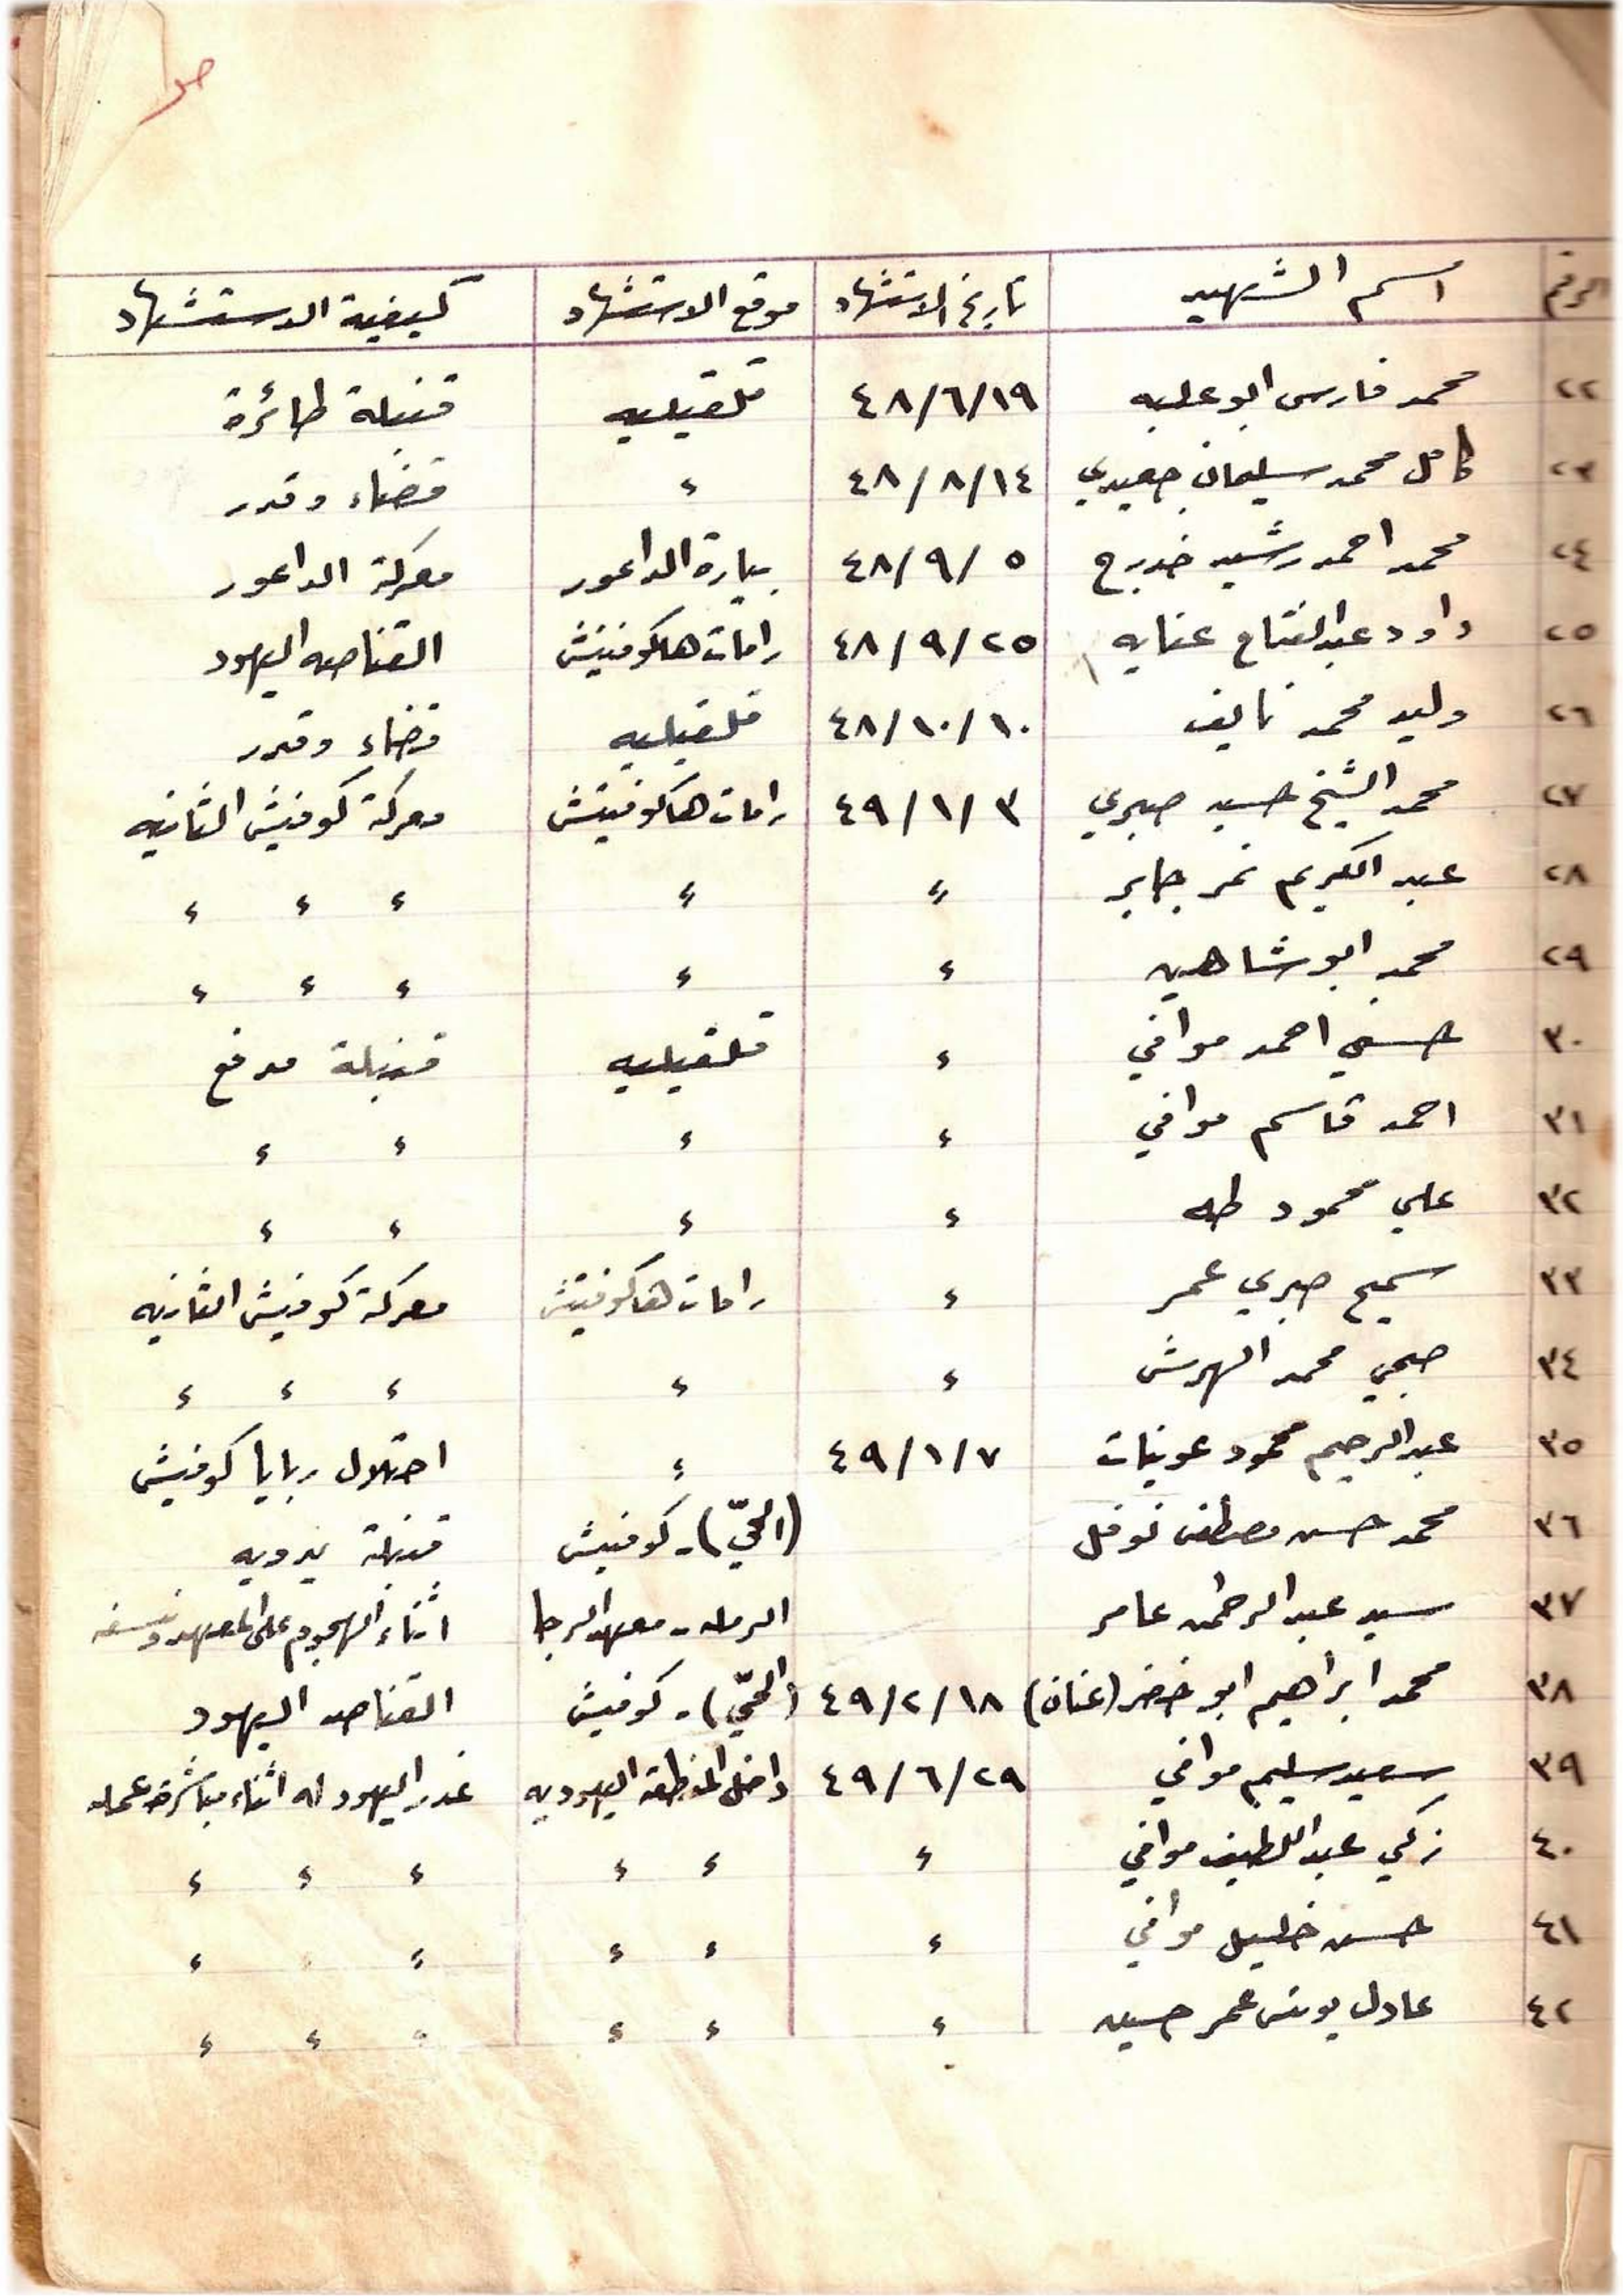 الرقم اسم الشهيد تاريخ الاستشهاد موقع الاستشهاد كيفية الاستشهاد
٢٢ محمد فارس ابو علبه ٤٨/٦/١٩ قلقيليه قنبلة طائرة
٢٣ كامل محمد سليمان جعيدي ٤٨/٨/١٤ ء قضاء وقدر
٢٤ محمد احمد رشيد خدرج ٤٨/٩/٥ بيارة الداعور معركة الداعور
٢٥ داود عبدالفتاح عنايه ٤٨/٩/٢٥ رامات هاكوفيتش القناصه اليهود
٢٦ وليد محمد نايف ٤٨/١٠/١٠ قلقيليه قضاء وقدر
٢٧ محمد الشيخ حسين صبري ٤٩/١/٣ رامات هاكوفيتش معركة كوفيش الثانيه
٢٨ عبد الكريم نمر جابر ء ء ء ء ء
٢٩ محمد ابو شاهين ء ء ء ء ء
٣٠ حسني احمد موافي ء قلقيليه قنبلة مدفع
٣١ احمد قاسم موافي ء ء ء ء
٣٢ علي محمود طه ء ء ء ء
٣٣ سميح صبري عمر ء رامات هاكوفيتش معركة كوفيش الثانيه
٣٤ صبحي محمد الهرش ء ء ء ء ء
٣٥ عبدالرحيم محمود عوينات ٤٩/١/٧ ء احتلال ربايا كوفيش
٣٦ محمد حسن مصطفى نوفل (الحيّ) - كوفيش قنبلة يدويه
٣٧ سيد عبد الرحمن عامر الرمله - معهد الرجا اثناء الهجوم على المعهد ونسفه
٣٨ محمد ابراهيم ابو خضر (عنان) ٤٩/٢/١٨ (الحيّ) - كوفيش القناصه اليهود
٣٩ سعيد سليم موافي ٤٩/٦/٢٩ داخل المنطقة اليهوديه غدر اليهود له اثناء مباشرة عمله
٤٠ زكي عبداللطيف موافي ء ء ء ء ء ء
٤١ حسن خليل موافي ء ء ء ء ء ء
٤٢ عادل يونس عمر حسين ء ء ء ء ء ء